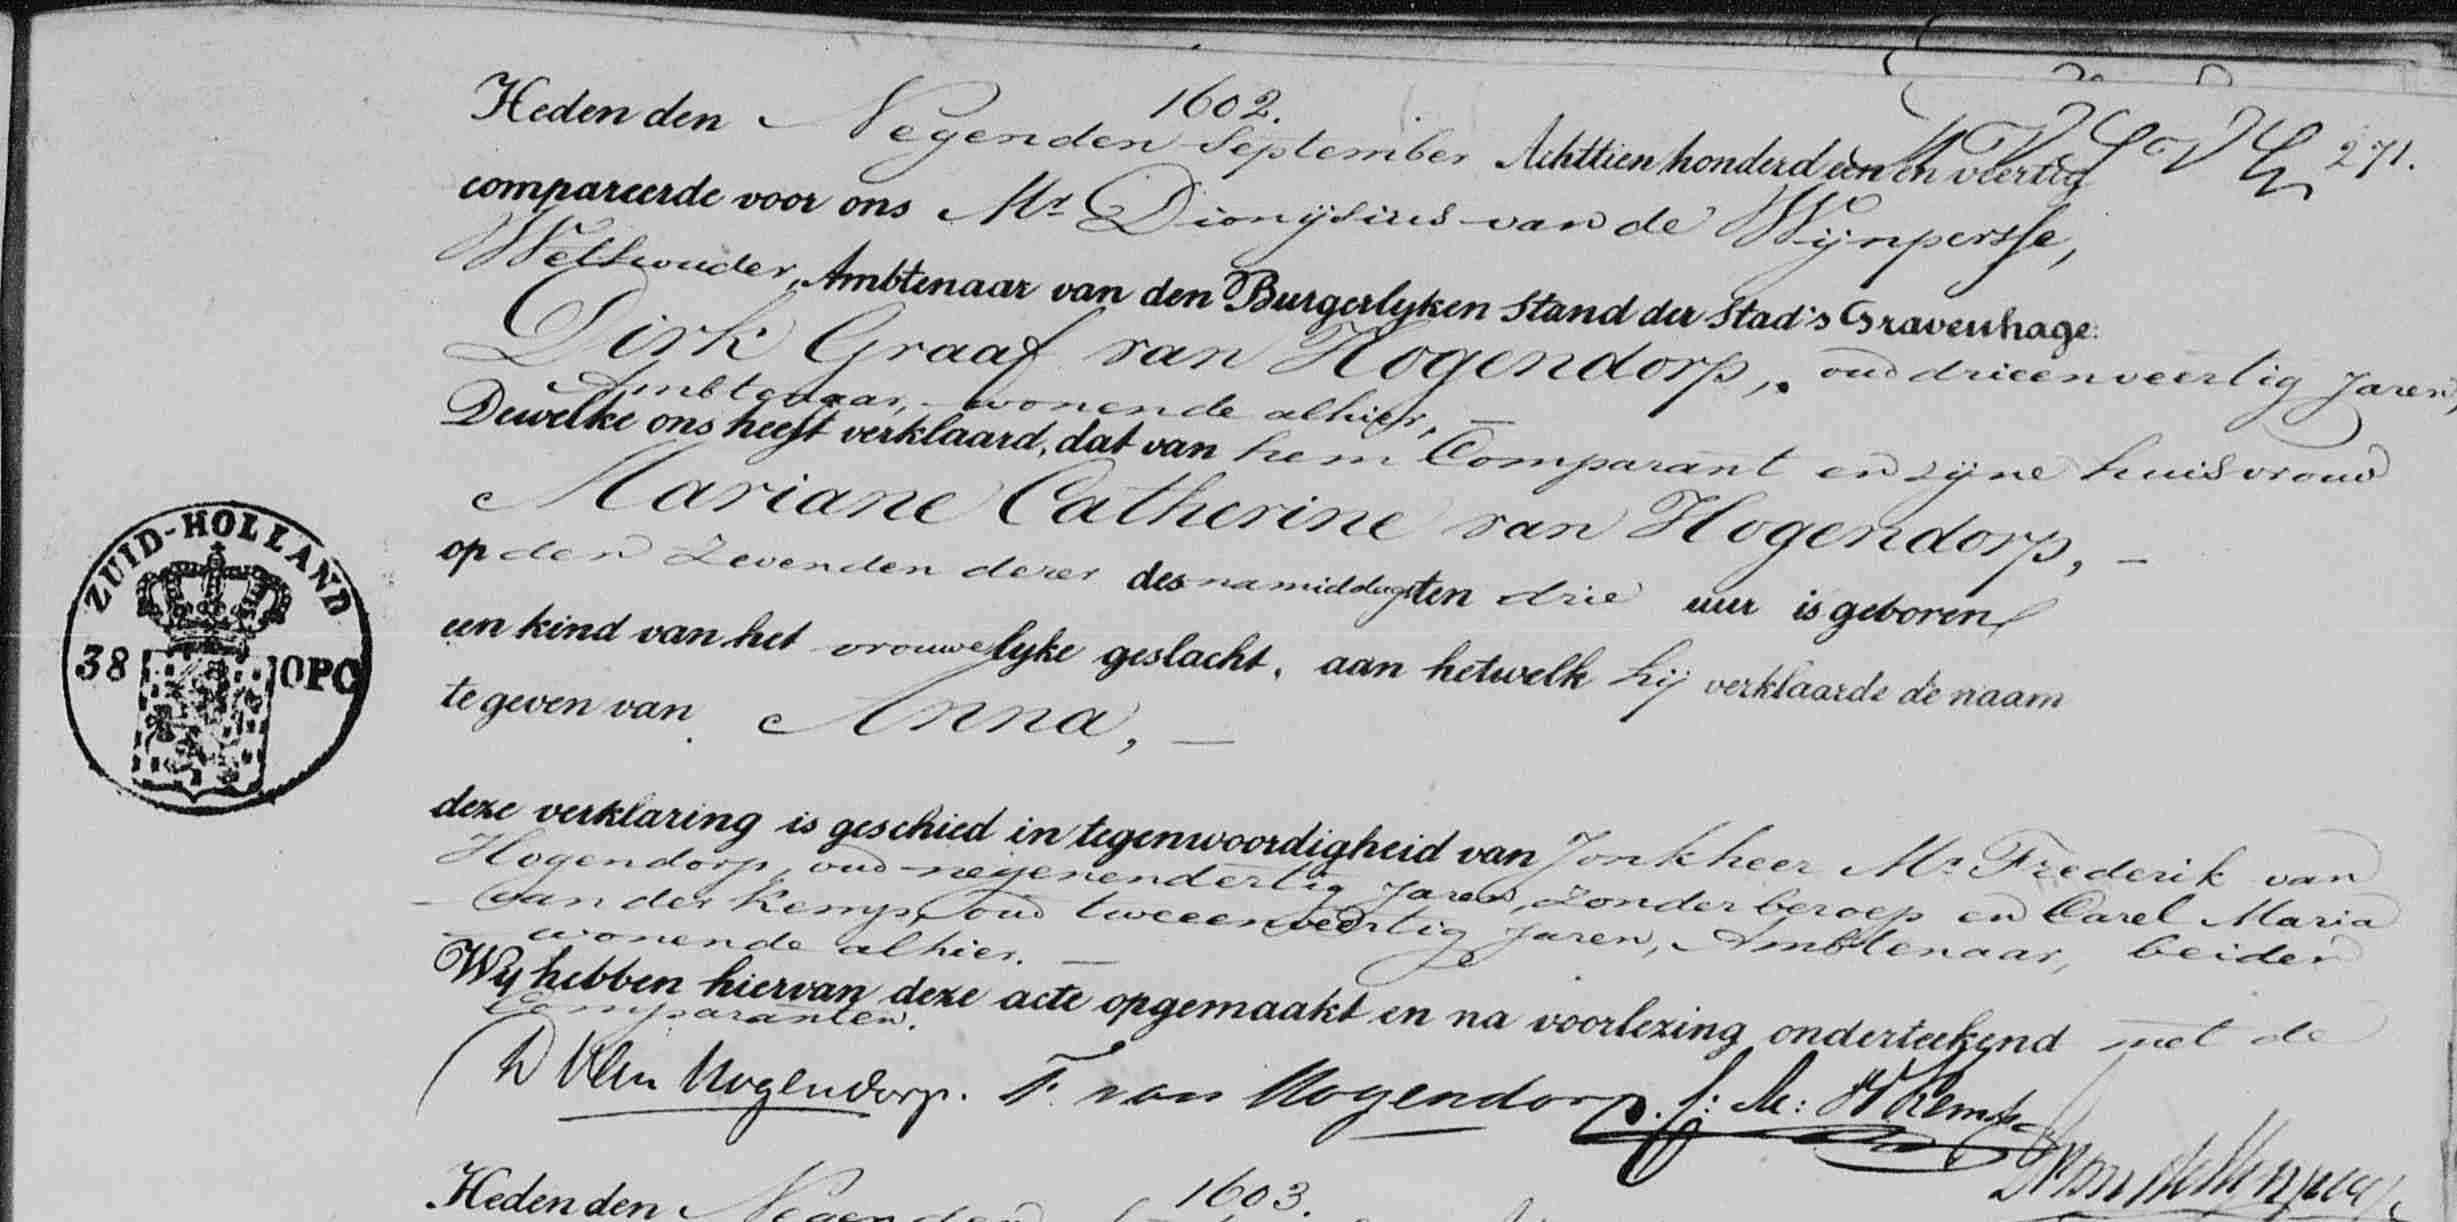 1602.
271.
Heden den Negenden September Achttien honderd een en veertig
compareerde voor ons Mr. Dionijsius van de Wijnpersse,
Wethouder, Ambtenaar van den Burgerlyken Stand der Stad 's Gravenhage.
Dirk Graaf van Hogendorp, oud drieenveertig Jaren,
Ambtenaar, wonende alhier, —
Dewelke ons heeft verklaard, dat van hem Comparant en zijne huisvrouw
Mariane Catherine van Hogendorp, —
op den Zevenden dezer des namiddags ten drie uur is geboren
een kind van het vrouwelyke geslacht, aan hetwelk hij verklaarde de naam
te geven van Anna, —
deze verklaring is geschied in tegenwoordigheid van Jonkheer Mr. Frederik van
Hogendorp, oud negenendertig Jaren, Zonder beroep en Carel Maria
van der Kemp, oud tweeenveertig Jaren, Ambtenaar, beiden
wonende alhier. —
Wy hebben hiervan deze acte opgemaakt en na voorlezing onderteekend met de
Comparanten.
D Van Hogendorp. F. van Hogendorp. C: M: VdKemp
ZUID-HOLLAND
38 OPC
1603.
Heden den Negenden